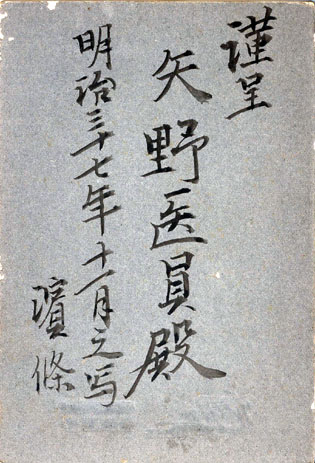 謹呈
矢野医員殿
明治三十七年十一月之写
濵條